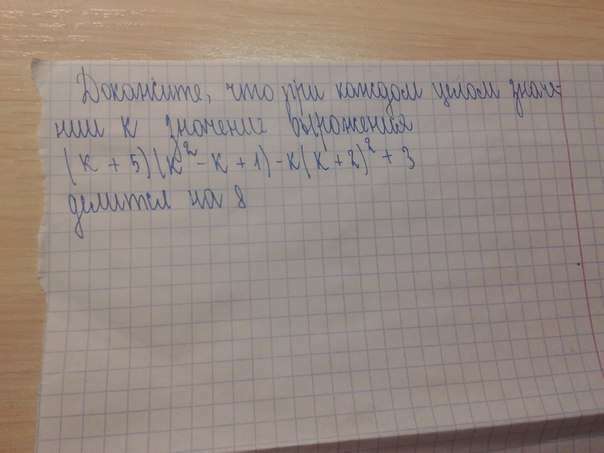 Докажите, что при каждом целом значе-
нии к значение выражения
(к + 5)(к² - к + 1) - к(к + 2)² + 3
делится на 8